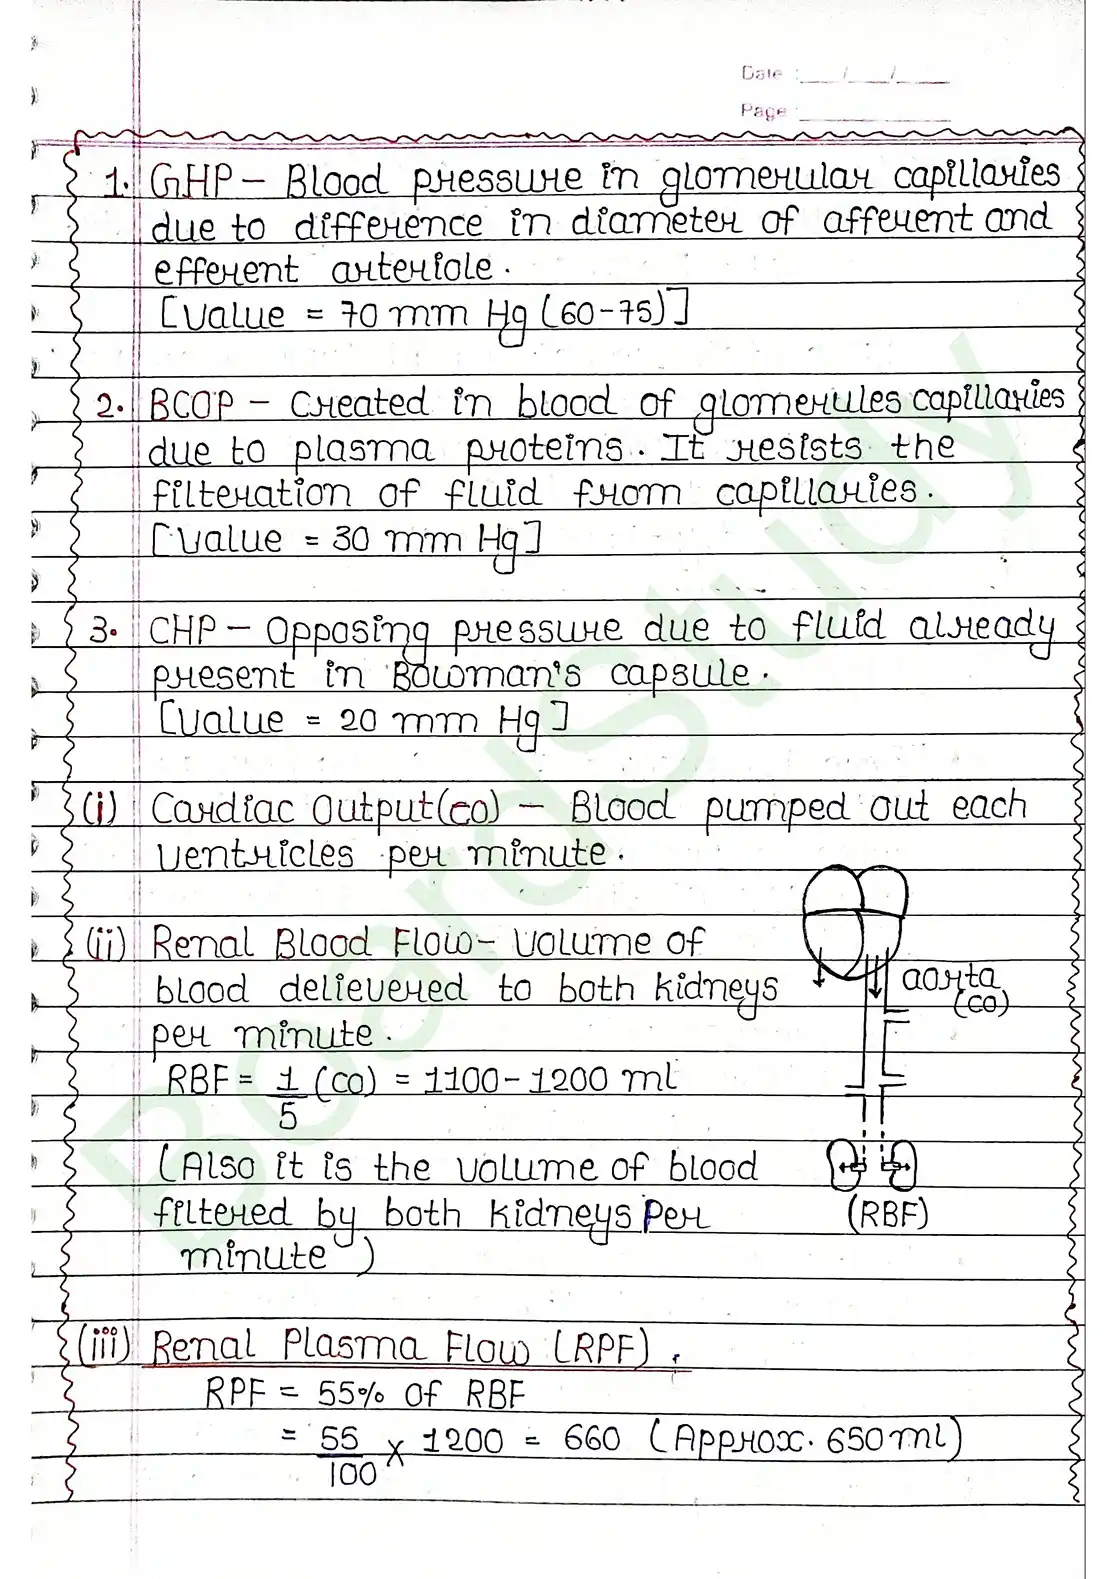 Date : __/__/__
Page :
1. GHP - Blood pressure in glomerular capillaries
due to difference in diameter of afferent and
efferent arteriole.
[Value = 70 mm Hg (60-75)]
2. BCOP - Created in blood of glomerules capillaries
due to plasma proteins. It resists the
filteration of fluid from capillaries.
[Value = 30 mm Hg]
3. CHP - Opposing pressure due to fluid already
present in Bowman's capsule.
[Value = 20 mm Hg]
(i) Cardiac Output (CO) - Blood pumped out each
ventricles per minute.
(ii) Renal Blood Flow - Volume of
blood delievered to both kidneys
per minute.
RBF = 1/5 (CO) = 1100-1200 ml
(Also it is the volume of blood
filtered by both kidneys per
minute)
aorta
(CO)
(RBF)
(iii) Renal Plasma Flow (RPF).
RPF = 55% of RBF
= 55/100 x 1200 = 660 (Approx. 650 ml)
BoardStudy